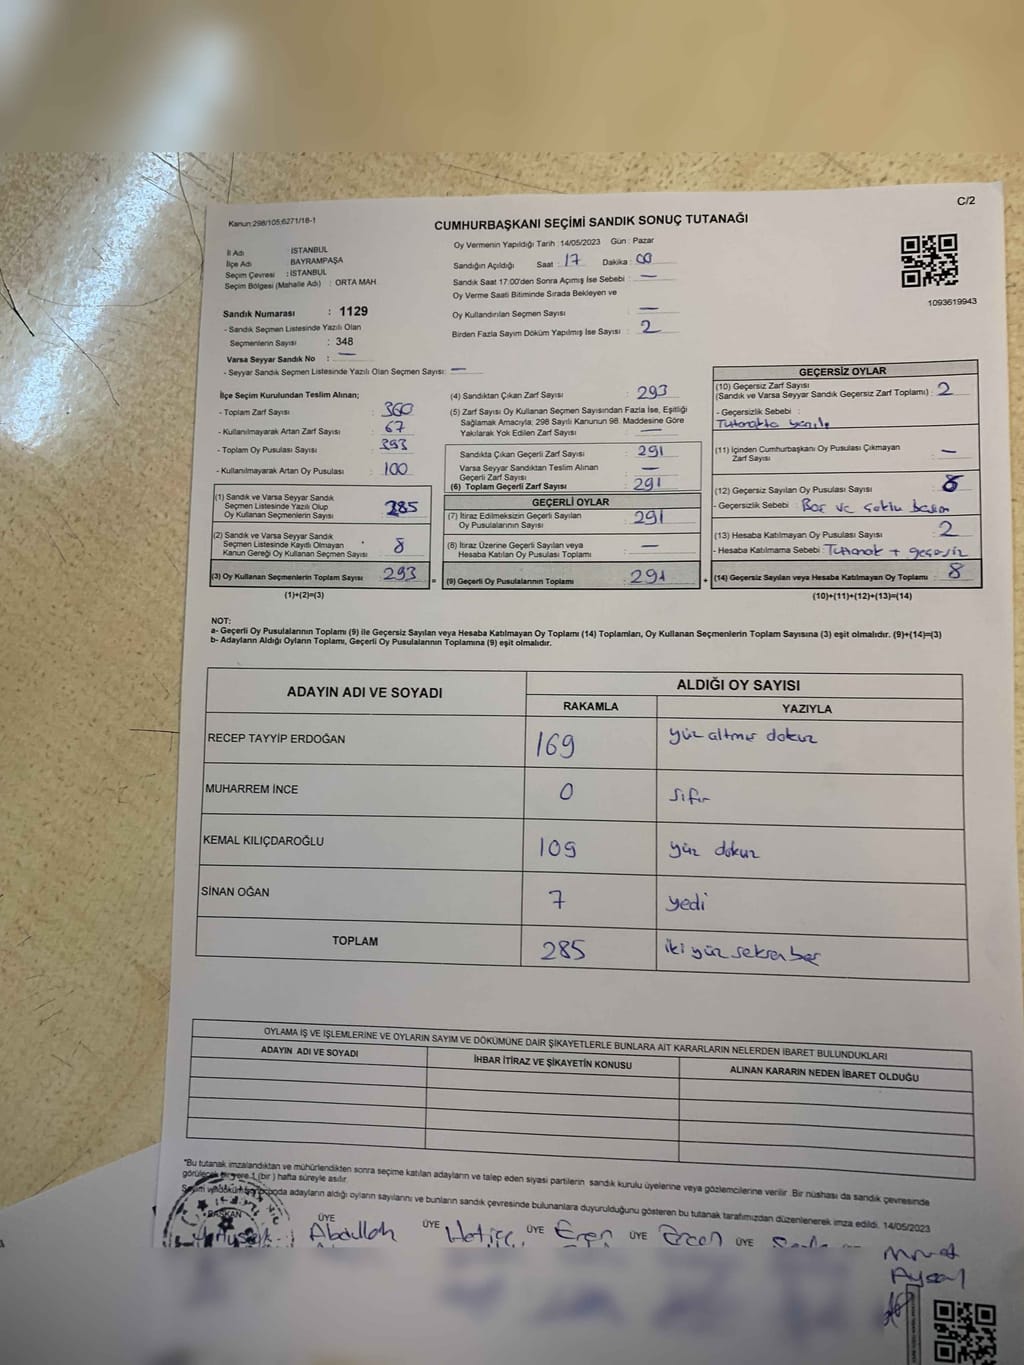 C/2
Kanun:298/105;6271/16-1
CUMHURBAŞKANI SEÇİMİ SANDIK SONUÇ TUTANAĞI
İl Adı : İSTANBUL
İlçe Adı BAYRAMPAŞA
Seçim Çevresi : İSTANBUL
Seçim Bölgesi (Mahalle Adı) : ORTA MAH.
Oy Vermenin Yapıldığı Tarih : 14/05/2023 Gün : Pazar
Sandığın Açıldığı Saat : 17 Dakika : 00
Sandık Saat 17:00'den Sonra Açılmış İse Sebebi : —
Oy Verme Saati Bitiminde Sırada Bekleyen ve
Oy Kullandırılan Seçmen Sayısı : —
Birden Fazla Sayım Döküm Yapılmış İse Sayısı : 2
1093619943
Sandık Numarası : 1129
- Sandık Seçmen Listesinde Yazılı Olan
Seçmenlerin Sayısı : 348
Varsa Seyyar Sandık No : —
- Seyyar Sandık Seçmen Listesinde Yazılı Olan Seçmen Sayısı: —
İlçe Seçim Kurulundan Teslim Alınan;
- Toplam Zarf Sayısı : 360
- Kullanılmayarak Artan Zarf Sayısı : 67
- Toplam Oy Pusulası Sayısı : 393
- Kullanılmayarak Artan Oy Pusulası : 100
(1) Sandık ve Varsa Seyyar Sandık
Seçmen Listesinde Yazılı Olup
Oy Kullanan Seçmenlerin Sayısı : 285
(2) Sandık ve Varsa Seyyar Sandık
Seçmen Listesinde Kayıtlı Olmayan
Kanun Gereği Oy Kullanan Seçmen Sayısı : 8
(3) Oy Kullanan Seçmenlerin Toplam Sayısı : 293
(1)+(2)=(3)
(4) Sandıktan Çıkan Zarf Sayısı : 293
(5) Zarf Sayısı Oy Kullanan Seçmen Sayısından Fazla İse, Eşitliği
Sağlamak Amacıyla; 298 Sayılı Kanunun 98. Maddesine Göre
Yakılarak Yok Edilen Zarf Sayısı : —
Sandıkta Çıkan Geçerli Zarf Sayısı : 291
Varsa Seyyar Sandıktan Teslim Alınan
Geçerli Zarf Sayısı : —
(6) Toplam Geçerli Zarf Sayısı : 291
GEÇERLİ OYLAR
(7) İtiraz Edilmeksizin Geçerli Sayılan
Oy Pusulalarının Sayısı : 291
(8) İtiraz Üzerine Geçerli Sayılan veya
Hesaba Katılan Oy Pusulası Toplamı : —
= (9) Geçerli Oy Pusulalarının Toplamı : 291
GEÇERSİZ OYLAR
(10) Geçersiz Zarf Sayısı
(Sandık ve Varsa Seyyar Sandık Geçersiz Zarf Toplamı) : 2
- Geçersizlik Sebebi :
Tutanakta yazılı
(11) İçinden Cumhurbaşkanı Oy Pusulası Çıkmayan
Zarf Sayısı : —
(12) Geçersiz Sayılan Oy Pusulası Sayısı : 8
- Geçersizlik Sebebi : Boş ve çoklu basım
(13) Hesaba Katılmayan Oy Pusulası Sayısı : 2
- Hesaba Katılmama Sebebi : Tutanak + geçersiz
+ (14) Geçersiz Sayılan veya Hesaba Katılmayan Oy Toplamı : 8
(10)+(11)+(12)+(13)=(14)
NOT:
a- Geçerli Oy Pusulalarının Toplamı (9) ile Geçersiz Sayılan veya Hesaba Katılmayan Oy Toplamı (14) Toplamları, Oy Kullanan Seçmenlerin Toplam Sayısına (3) eşit olmalıdır. (9)+(14)=(3)
b- Adayların Aldığı Oyların Toplamı, Geçerli Oy Pusulalarının Toplamına (9) eşit olmalıdır.
ADAYIN ADI VE SOYADI
ALDIĞI OY SAYISI
RAKAMLA YAZIYLA
RECEP TAYYİP ERDOĞAN 169 yüz altmış dokuz
MUHARREM İNCE 0 sıfır
KEMAL KILIÇDAROĞLU 109 yüz dokuz
SİNAN OĞAN 7 yedi
TOPLAM 285 iki yüz seksen beş
OYLAMA İŞ VE İŞLEMLERİNE VE OYLARIN SAYIM VE DÖKÜMÜNE DAİR ŞİKAYETLERLE BUNLARA AİT KARARLARIN NELERDEN İBARET BULUNDUKLARI
ADAYIN ADI VE SOYADI İHBAR İTİRAZ VE ŞİKAYETİN KONUSU ALINAN KARARIN NEDEN İBARET OLDUĞU
*Bu tutanak imzalandıktan ve mühürlendikten sonra seçime katılan adayların ve talep eden siyasi partilerin sandık kurulu üyelerine veya gözlemcilerine verilir. Bir nüshası da sandık çevresinde
görülecek bir yere 1 (bir) hafta süreyle asılır.
Seçim adayların aldığı oyların sayılarını ve bunların sandık çevresinde bulunanlara duyurulduğunu gösteren bu tutanak tarafımızdan düzenlenerek imza edildi. 14/05/2023
BAŞKAN ÜYE Abdullah ÜYE Hatice ÜYE Eren ÜYE Ercan ÜYE
Murat
Aysal